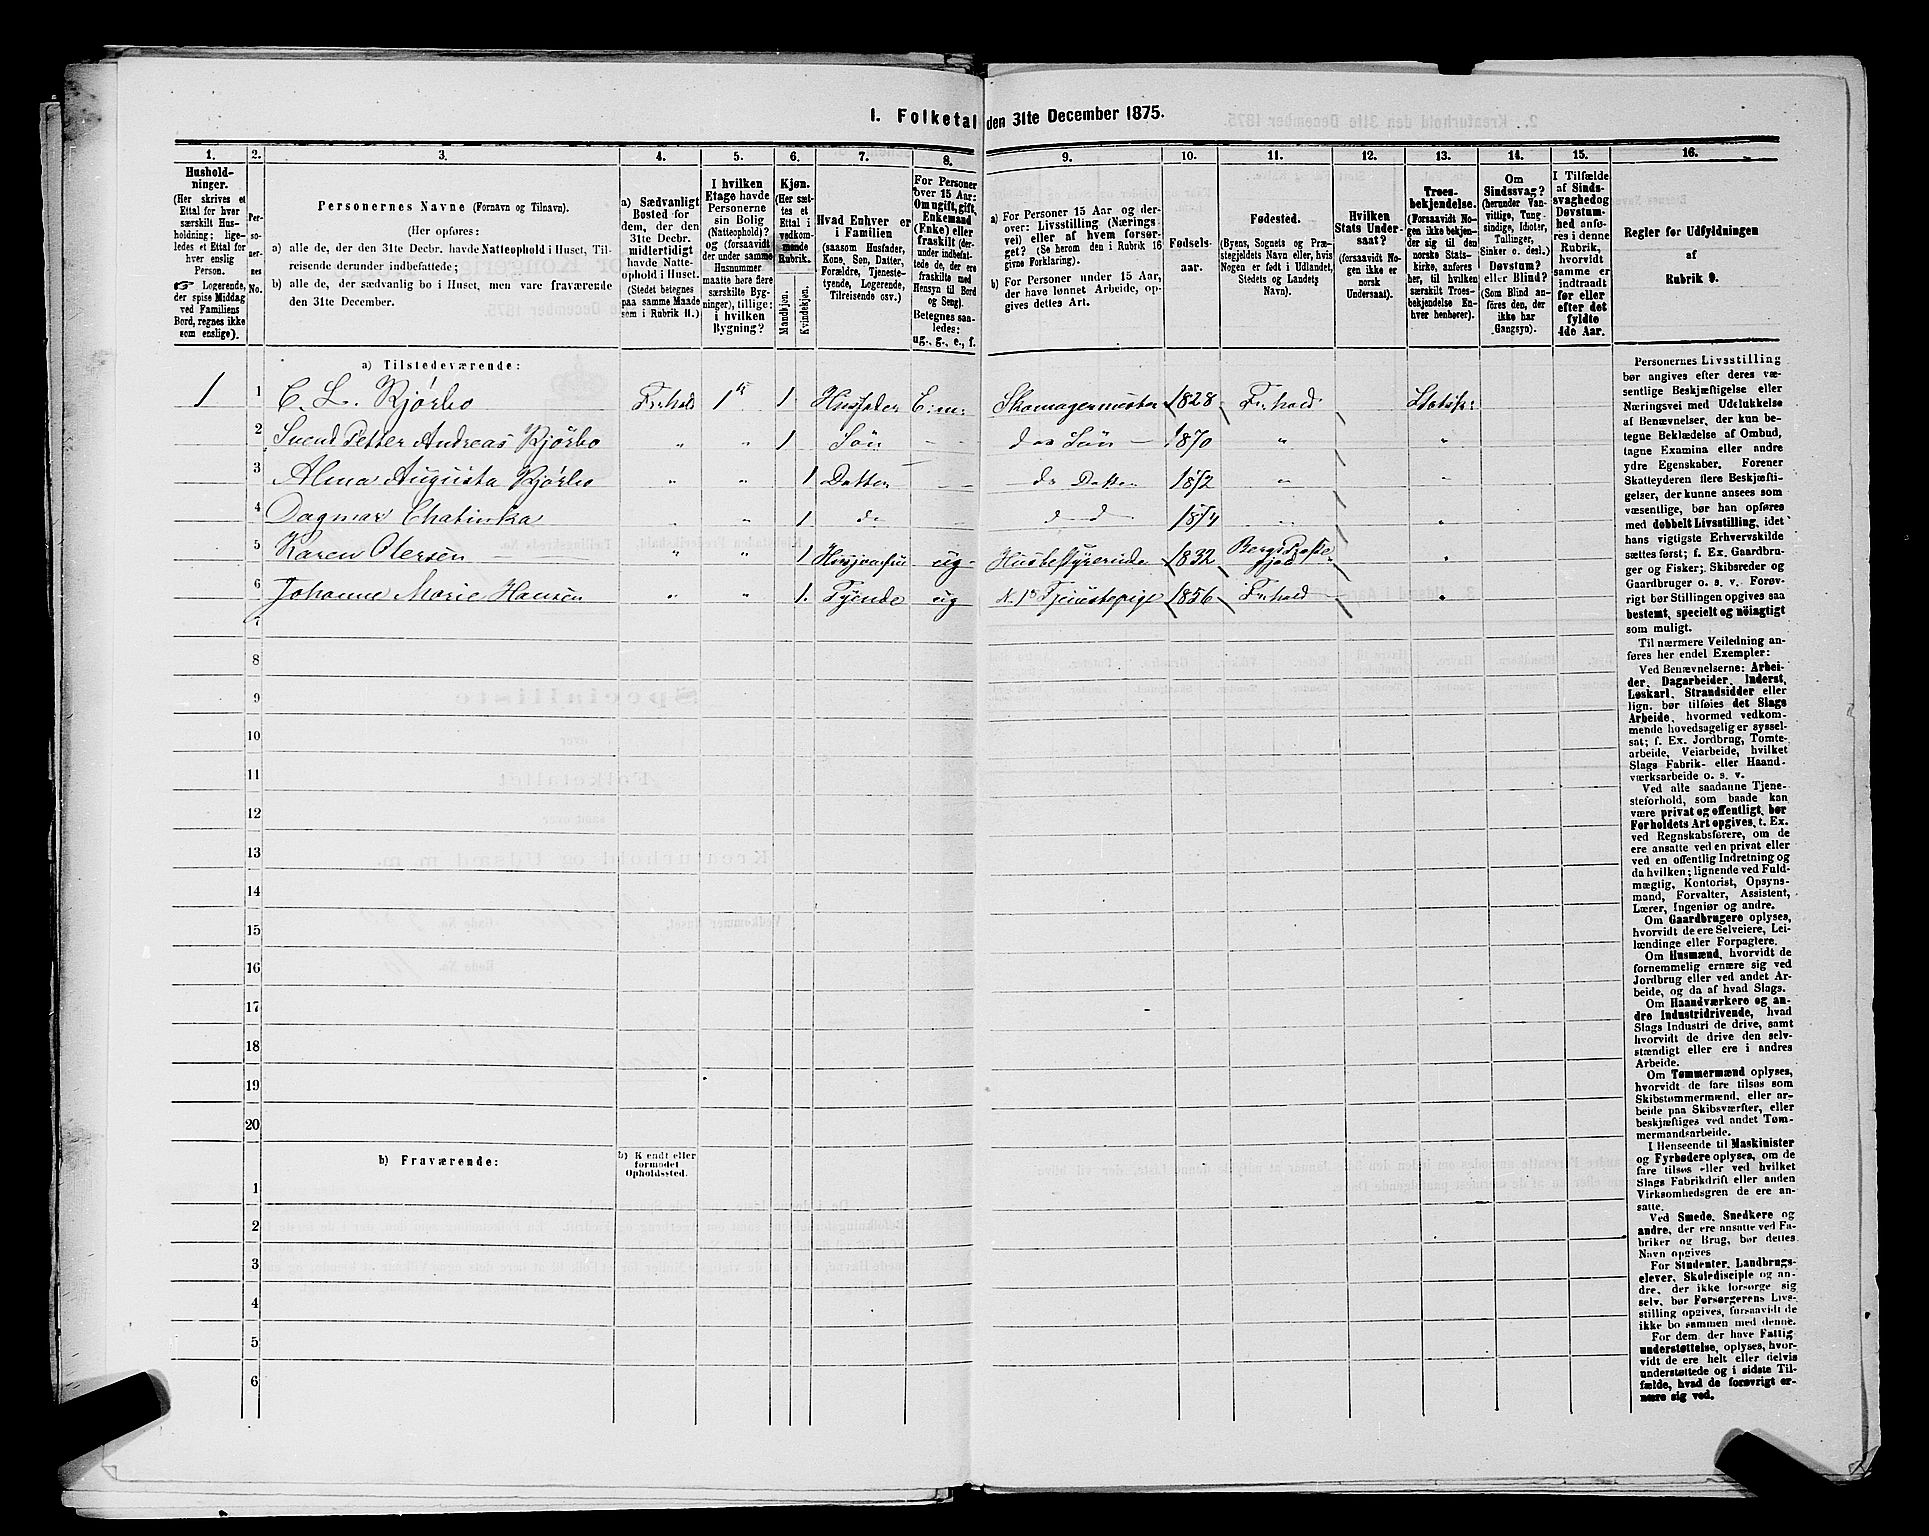 1. Folketal den 31te December 1875.
1. 2. 3. 4. 5. 6. 7. 8. 9. 10. 11. 12. 13. 14. 15. 16.
Hushold-
ninger.
(Her skrives et
Ettal for hver
særskilt Hus-
holdning; lige-
ledes et Ettal for
hver enslig
Person.
☞ Logerende,
der spise Middag
ved Familiens
Bord, regnes ikke
som enslige).
Per-
so-
ner-
nes
No.
Personernes Navne (Fornavn og Tilnavn).
(Her opføres:
a) alle de, der den 31te Decbr. havde Natteophold i Huset, Til-
reisende derunder indbefattede;
b) alle de, der sædvanlig bo i Huset, men vare fraværende
den 31te December.
a) Sædvanligt
Bosted for
dem, der den
31te Decbr.
midlertidigt
havde Natte-
ophold i Huset.
(Stedet betegnes
paa samme Maade
som i Rubrik 11.)
I hvilken
Etage havde
Personerne
sin Bolig
(Natteophold)?
og (forsaavidt
der under samme
Husnummer
maatte høre flere
særskilte Byg-
ninger), tillige:
i hvilken
Bygning?
Kjøn.
(Her sæt-
tes et
Ettal i
vedkom-
mende
Rubrik.
Mandkjøn.
Kvindekjøn.
Hvad Enhver er
i Familien
(saasom Husfader,
Kone, Søn, Datter,
Forældre, Tjeneste-
tyende, Logerende,
Tilreisende osv.)
For Personer
over 15 Aar:
Om ugift, gift,
Enkemand
(Enke) eller
fraskilt (der-
under indbefat-
tede de, der ere
fraskilte med
Hensyn til Bord
og Seng).
Betegnes saa-
ledes:
ug., g., e., f.
a) For Personer 15 Aar og der-
over: Livsstilling (Nærings-
vei) eller af hvem forsør-
get? (Se herom den i Rubrik 16
givne Forklaring).
b) For Personer under 15 Aar,
der have lønnet Arbeide, op-
gives dettes Art.
Fødsels-
aar.
Fødested.
(Byens, Sognets og Præ-
stegjeldets Navn eller, hvis
Nogen er født i Udlandet,
Stedets og Landets
Navn).
Hvilken
Stats Under-
saat?
(forsaavidt No-
gen ikke er
norsk
Undersaat).
Troes-
bekjendelse.
(Forsaavidt No-
gen ikke bekjen-
der sig til den
norske Stats-
kirke, anføres
her, til hvilken
særskilt Troes-
bekjendelse En-
hver henhører).
Om
Sindssvag?
(herunder Van-
vittige, Tung-
sindige, Idioter,
Tullinger,
Sinker o. desl.)
Døvstum?
eller Blind?
(Som Blind an-
føres den, der
ikke har
Gangsyn).
I Tilfælde
af Sinds-
svaghed og
Døvstum-
hed anfø-
res i denne
Rubrik,
hvorvidt
samme er
indtraadt
før eller
efter det
fyldte
4de Aar.
Regler for Udfyldningen
af
Rubrik 9.
a) Tilstedeværende:
1 1 C. L. Kjørbo Fr:hald 1ste 1 Husfader E:m: Skomagermester 1828 Fr:hald Statsk:
2 Svend Petter Andreas Kjørbo " " 1 Søn ds Søn 1870 " "
3 Alma Augusta Kjørbo " " 1 Datter ds Datter 1872 " "
4 Dagmar Chatinka " " 1 do d d 1874 " "
5 Karen Olersen " " 1 ug Husbestyrerinde 1832 Bergs "
6 Johanne Marie Hansen " " 1. Tyende ug Tjenstepige 1856 Fr:hald "
7
8
9
10
11
12
13
14
15
16
17
18
19
20
b) Fraværende:
b) Kjendt eller
formodet
Opholdssted.
1
2
3
4
5
6
Personernes Livsstilling
bør angives efter deres væ-
sentlige Beskjæftigelse eller
Næringsvei med Udelukkelse
af Benævnelser, der kun be-
tegne Beklædelse af Ombud,
tagne Examina eller andre
ydre Egenskaber. Forener
Skatteyderen flere Beskjæfti-
gelser, der kunne ansees som
væsentlige, bør han opføres
med dobbelt Livsstilling, idet
hans vigtigste Erhvervskilde
sættes først; f. Ex. Gaardbru-
ger og Fisker; Skibsreder og
Gaardbruger o. s. v. Forøv-
rigt bør Stillingen opgives saa
bestemt, specielt og nöiagtigt
som muligt.
Til nærmere Veiledning an-
føres her endel Exempler:
Ved Benævnelserne: Arbei-
der, Dagarbeider, Inderst,
Løskarl, Strandsidder eller
lign. bør tilføies det Slags
Arbeide, hvormed vedkom-
mende hovedsagelig er syssel-
sat; f. Ex. Jordbrug, Tomte-
arbeide, Veiarbeide, hvilket
Slags Fabrik- eller Haand-
værksarbeide o. s. v.
Ved alle saadanne Tjene-
steforhold, som baade kan
være privat og offentligt, bør
Forholdets Art opgives, t. Ex.
ved Regnskabsførere, om de
ere ansatte ved en privat eller
ved en offentlig Indretning og
da hvilken; lignende ved Fuld-
mægtig, Kontorist, Opsyns-
mand, Forvalter, Assistent,
Lærer, Ingeniør og andre.
Om Gaardbrugere oplyses,
hvorvidt de ere Selveiere, Lei-
lændinge eller Forpagtere.
Om Husmænd, hvorvidt de
fornemmelig ernære sig ved
Jordbrug eller ved andet Ar-
beide, og da af hvad Slags.
Om Haandværkere og an-
dre Industridrivende, hvad
Slags Industri de drive, samt
hvorvidt de drive den selv-
stændigt eller ere i andres
Arbeide.
Om Tømmermænd oplyses,
hvorvidt de fare tilsøs som
Skibstømmermænd, eller ar-
beide paa Skibsværfter, eller
beskjæftiges ved andet Tøm-
mermandsarbeide.
I Henseende til Maskinister
og Fyrbødere oplyses, om de
fare tilsøs eller ved hvilket
Slags Fabrikdrift eller anden
Virksomhedsgren de ere an-
satte.
Ved Smede, Snedkere og
andre, der ere ansatte ved Fa-
briker og Brug, bør dettes
Navn opgives
For Studenter, Landbrugs-
elever, Skoledisciple og an-
dre, der ikke forsørge sig
selv, bør Forsørgerens Livs-
stilling opgives, forsaavidt de
ikke bo sammen med denne.
For dem, der have Fattig-
understøttelse, oplyses, hvor-
vidt de ere helt eller delvis
understøttede og i sidste Til-
fælde, hvad de forøvrigt er-
nære sig ved.